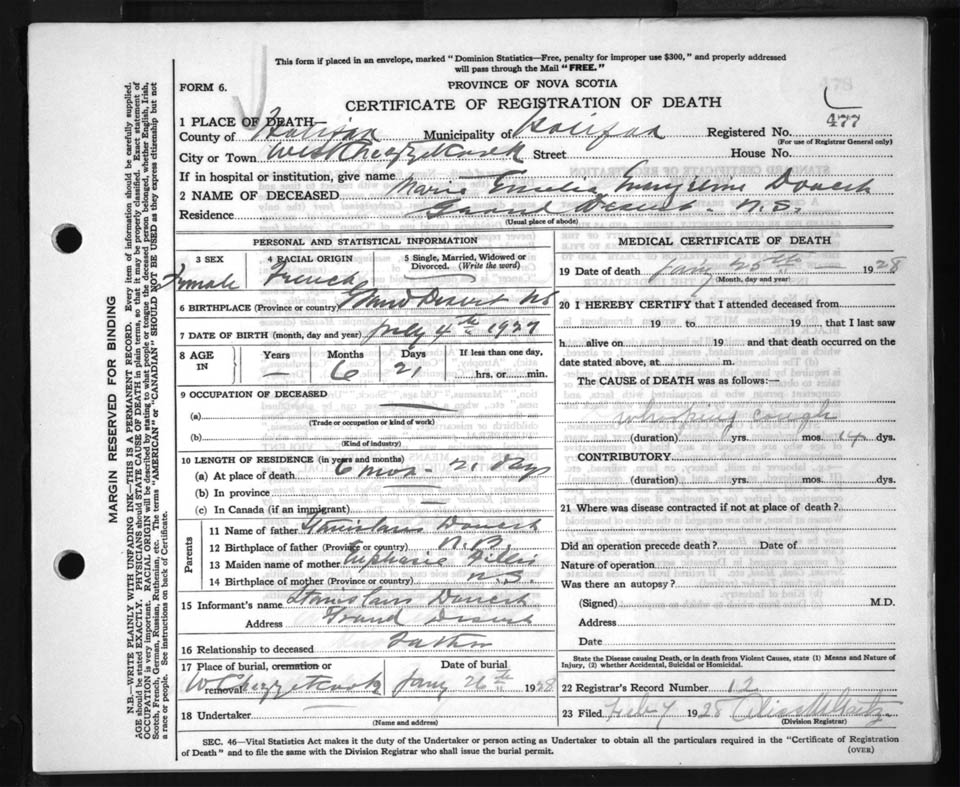 This form if placed in an envelope, marked "Dominion Statistics—Free, penalty for improper use $300," and properly addressed
will pass through the Mail "FREE."
FORM 6.
PROVINCE OF NOVA SCOTIA
CERTIFICATE OF REGISTRATION OF DEATH
1 PLACE OF DEATH—
County of Halifax Municipality of Halifax Registered No. 477
(For use of Registrar General only)
City or Town West Chezzetcook Street House No.
If in hospital or institution, give name
2 NAME OF DECEASED Marie Emelia
Residence Grand Desert N.S.
(Usual place of abode)
PERSONAL AND STATISTICAL INFORMATION
3 SEX
Female
4 RACIAL ORIGIN
French
5 Single, Married, Widowed or
Divorced. (Write the word)
6 BIRTHPLACE (Province or country) Grand Desert NS
7 DATE OF BIRTH (month, day and year) July 4th 1927
8 AGE
IN
Years
—
Months
6
Days
21
If less than one day,
hrs. or min.
9 OCCUPATION OF DECEASED
(a)
(Trade or occupation or kind of work)
(b)
(Kind of industry)
10 LENGTH OF RESIDENCE (in years and months)
(a) At place of death 6 mos - 21 days
(b) In province
(c) In Canada (if an immigrant)
Parents
11 Name of father Stanislaus
12 Birthplace of father (Province or country)
13 Maiden name of mother
14 Birthplace of mother (Province or country) N.S.
15 Informant's name Stanislaus
Address Grand Desert
16 Relationship to deceased Father
17 Place of burial, cremation or
removal W Chezzetcook
Date of burial
Jany 26th 1928
18 Undertaker
(Name and address)
MEDICAL CERTIFICATE OF DEATH
19 Date of death Jany 25th — 1928
(Month, day and year)
20 I HEREBY CERTIFY that I attended deceased from
19 to 19 that I last saw
h alive on 19 and that death occurred on the
date stated above, at m.
The CAUSE of DEATH was as follows:—
Whooping cough
(duration) yrs. mos. 14 dys.
CONTRIBUTORY
(duration) yrs. mos. dys.
21 Where was disease contracted if not at place of death?
Did an operation precede death? Date of
Nature of operation
Was there an autopsy?
(Signed) M.D.
Address
Date
State the Disease causing Death, or in death from Violent Causes, state (1) Means and Nature of
Injury, (2) whether Accidental, Suicidal or Homicidal.
22 Registrar's Record Number 12
23 Filed Feb 7 1928
(Division Registrar)
SEC. 46—Vital Statistics Act makes it the duty of the Undertaker or person acting as Undertaker to obtain all the particulars required in the "Certificate of Registration
of Death" and to file the same with the Division Registrar who shall issue the burial permit.
(OVER)
MARGIN RESERVED FOR BINDING
N.B.—WRITE PLAINLY WITH UNFADING INK—THIS IS A PERMANENT RECORD. Every item of information should be carefully supplied.
AGE should be stated EXACTLY. PHYSICIANS should STATE CAUSE OF DEATH in plain terms, so that it may be properly classified. Exact statement of
OCCUPATION is very important. RACIAL ORIGIN will be described by stating to what people or tongue the deceased person belonged, whether English, Irish,
Scotch, French, German, Russian, Ruthenian, etc. The terms "AMERICAN" or "CANADIAN" SHOULD NOT BE USED as they express citizenship but not
a race or people. See instructions on back of Certificate.